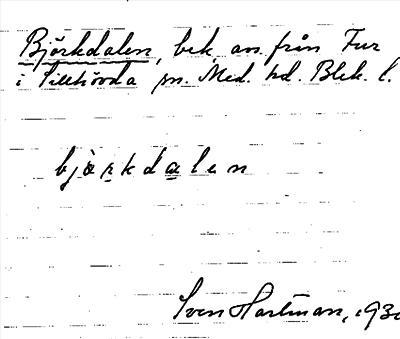 Björkdalen, bek. av. från Fur
i Tillhövda sn. Med. hd. Blek. l.
björkdalen
Sven Hartman, 193